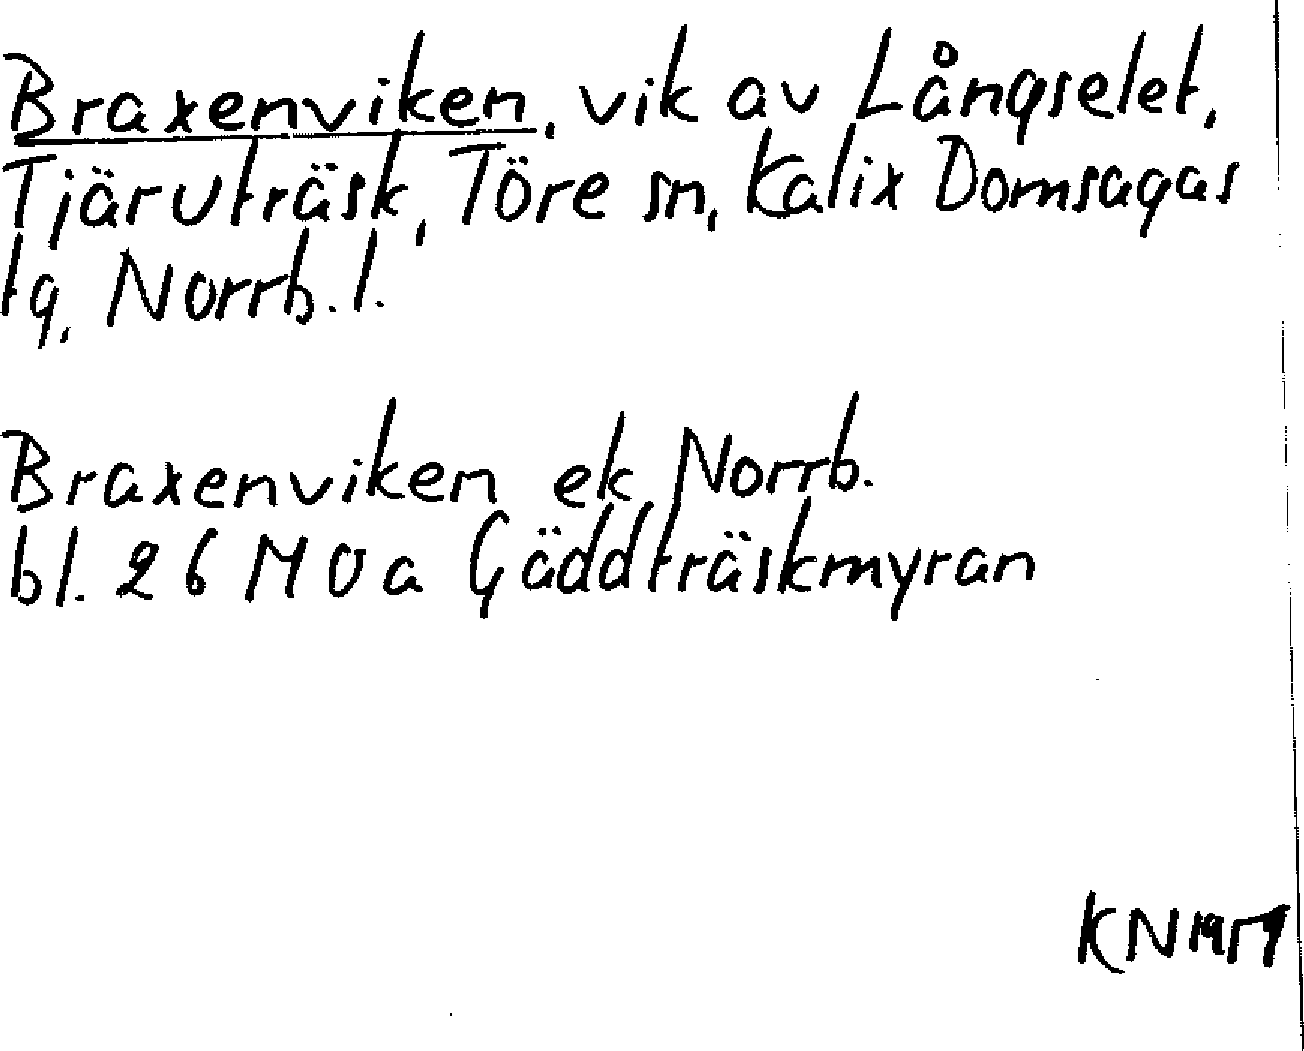 Braxenviken, vik av Långselet,
Tjäruträsk, Töre sn, Kalix Domsagas
tg, Norrb. l.
Braxenviken ek. Norrb.
bl. 26 M 0 a Gäddträskmyran
KN